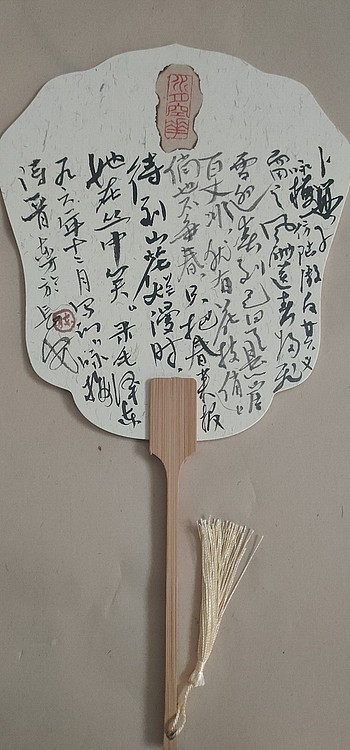 卜算子
咏梅 陆游 反其意
而之 风雨送春归 飞
雪迎春到 已是悬崖
百丈冰 犹有花枝俏
俏也不争春 只把春来报
待到山花烂漫时
她在丛中笑 录毛泽东
九六一年十二月写的咏梅
诗一首 于